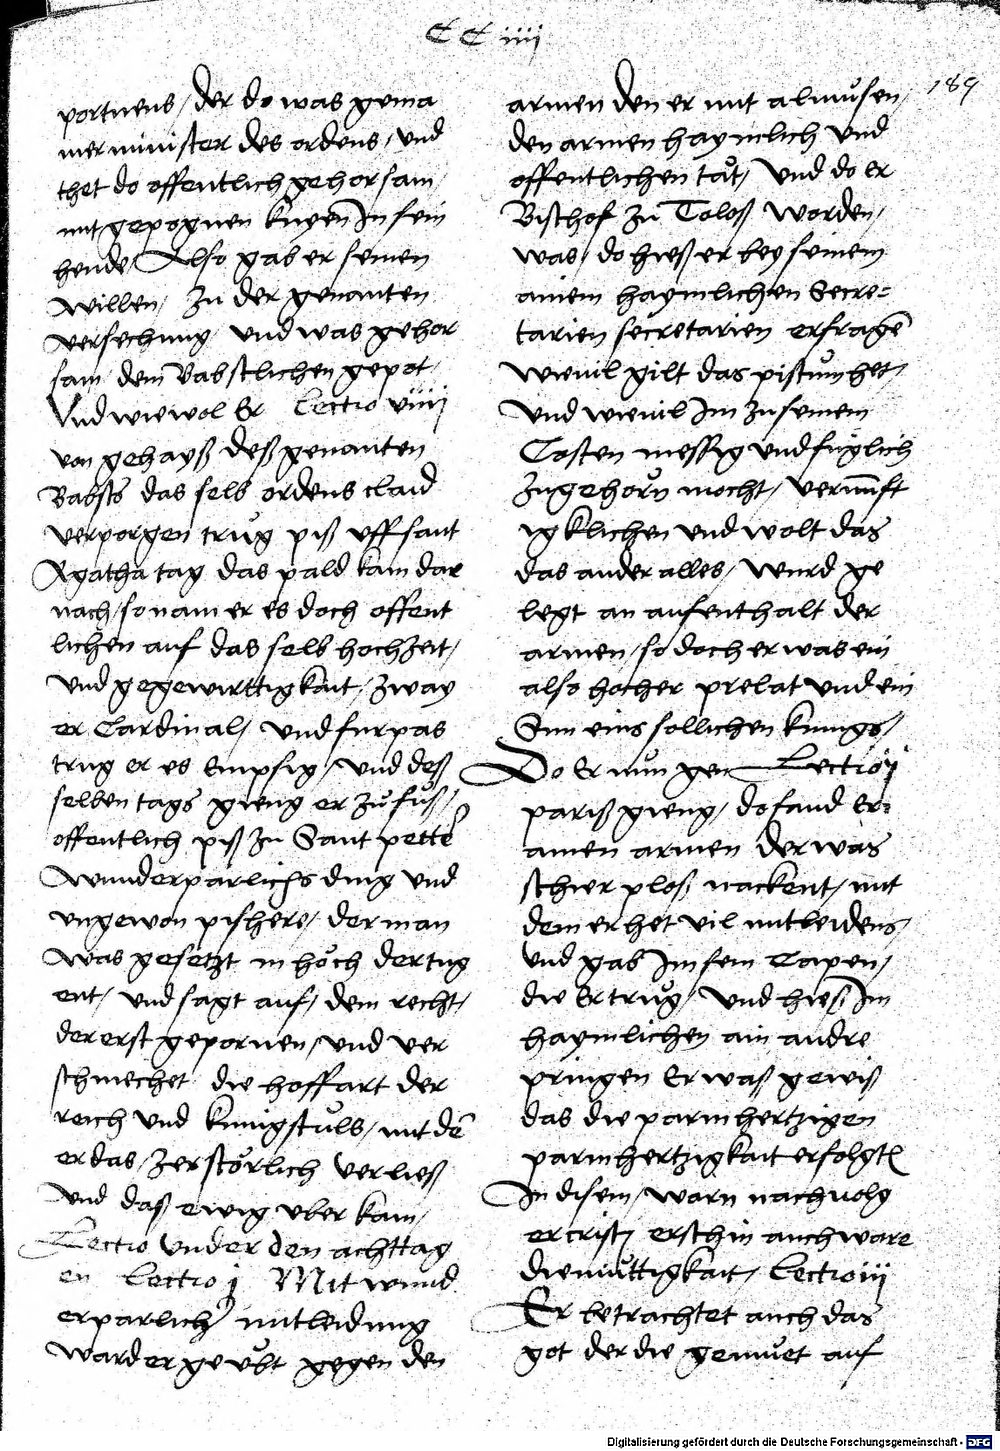 CC iiii
189
portuens / der do was gema
iner minister des ordens / und
thet do offentlich gehorsam /
mit gepognen knyen In sein
hende / Also gab er seinen
willen / zu der genanten
versechung / und was gehor
sam / dem Babstlichen gepot /
Vnd wiewol Er Lectio viiij
von gehayß deß genanten
Babsts das selb ordens claid
verporgen trug piß uff sant
Agatha tag das pald kam dar
nach / so nam er es doch offent
lichen auf das selb hochzeit /
und gegewirttigkait / zway
er Cardinal / und furpas
trug er es Empsig / und deß
selben tags gieng er zu fuß /
offentlich piß zu Sant petter
wunderparlichs ding und
ungewon pishere / der man
was gesetzt in hoch der tug
ent / und sagt auf / dem recht /
der erst gepornen / und ver
schmechet die hoffart der
reich und kunigstuls / mit dē
er das / zerstorlich verließ
und daß ewig uber kam /
Lectio under den achttag
en Lectio j Mit wund
erparlicher mitleidung
ward er geubt gegen den
armen den er mit almusen /
den armen haymlich und
offentlichen tat / Und do er
Bischof zu Toloß worden /
was / do hieß er bey seinem
ainem haymlichen Secre=
tarien secretarien erfragē
wieuil gilt das pistum het /
und wieuil Im zu seinem
Costen messig und fuglich
zugehorn mocht / vernunft
igklichen und wolt das
das ander alles / wurd ge
legt an aufenthalt der
armen / so doch er was ein
also hocher prelat und ein
Sun eins sollichen kunigs /
Do Er nun gen Lectio ij
pariß gieng / do fand Er=
ainen armen der was
schier ploß nackent / mit
dem er het vil mitleidens /
und gab Im sein Capen /
die Er trug / Und hieß Im
haymlichen ain andre
pringen Er waß gewiß
das die parmhertzigen
parmhertzigkait erfolgtē
In disem / warn nachuolg
er cristi erschin auch ware
diemuttigkait / Lectio iij
Er betrachtet auch das
got der die gemuet auf
Digitalisierung gefördert durch die Deutsche Forschungsgemeinschaft - DFG